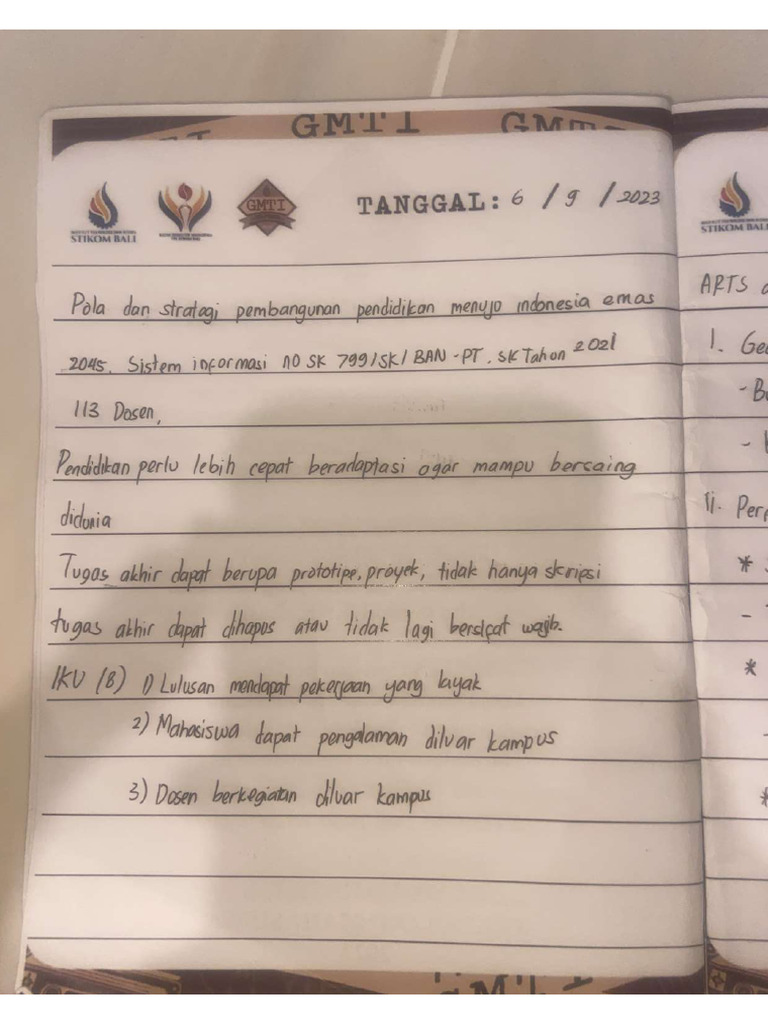 GMTI GMTI
GMTI
STIKOM BALI
TANGGAL: 6 / 9 / 2023
Pola dan strategi pembangunan pendidikan menujo indonesia emas
2045. Sistem informasi no SK 799/SK/BAN-PT. SK Tahon 2021
113 Dosen,
Pendidikan perlu lebih cepat beradaptasi agar mampu bersaing
didunia
Tugas akhir dapat berupa prototipe, proyek, tidak hanya skripsi
tugas akhir dapat dihapus atau tidak lagi bersifat wajib.
IKU (8) 1) Lulusan mendapat pekerjaan yang layak
2) Mahasiswa dapat pengalaman diluar kampus
3) Dosen berkegiatan diluar kampus
STIKOM BALI
ARTS
I.
II.